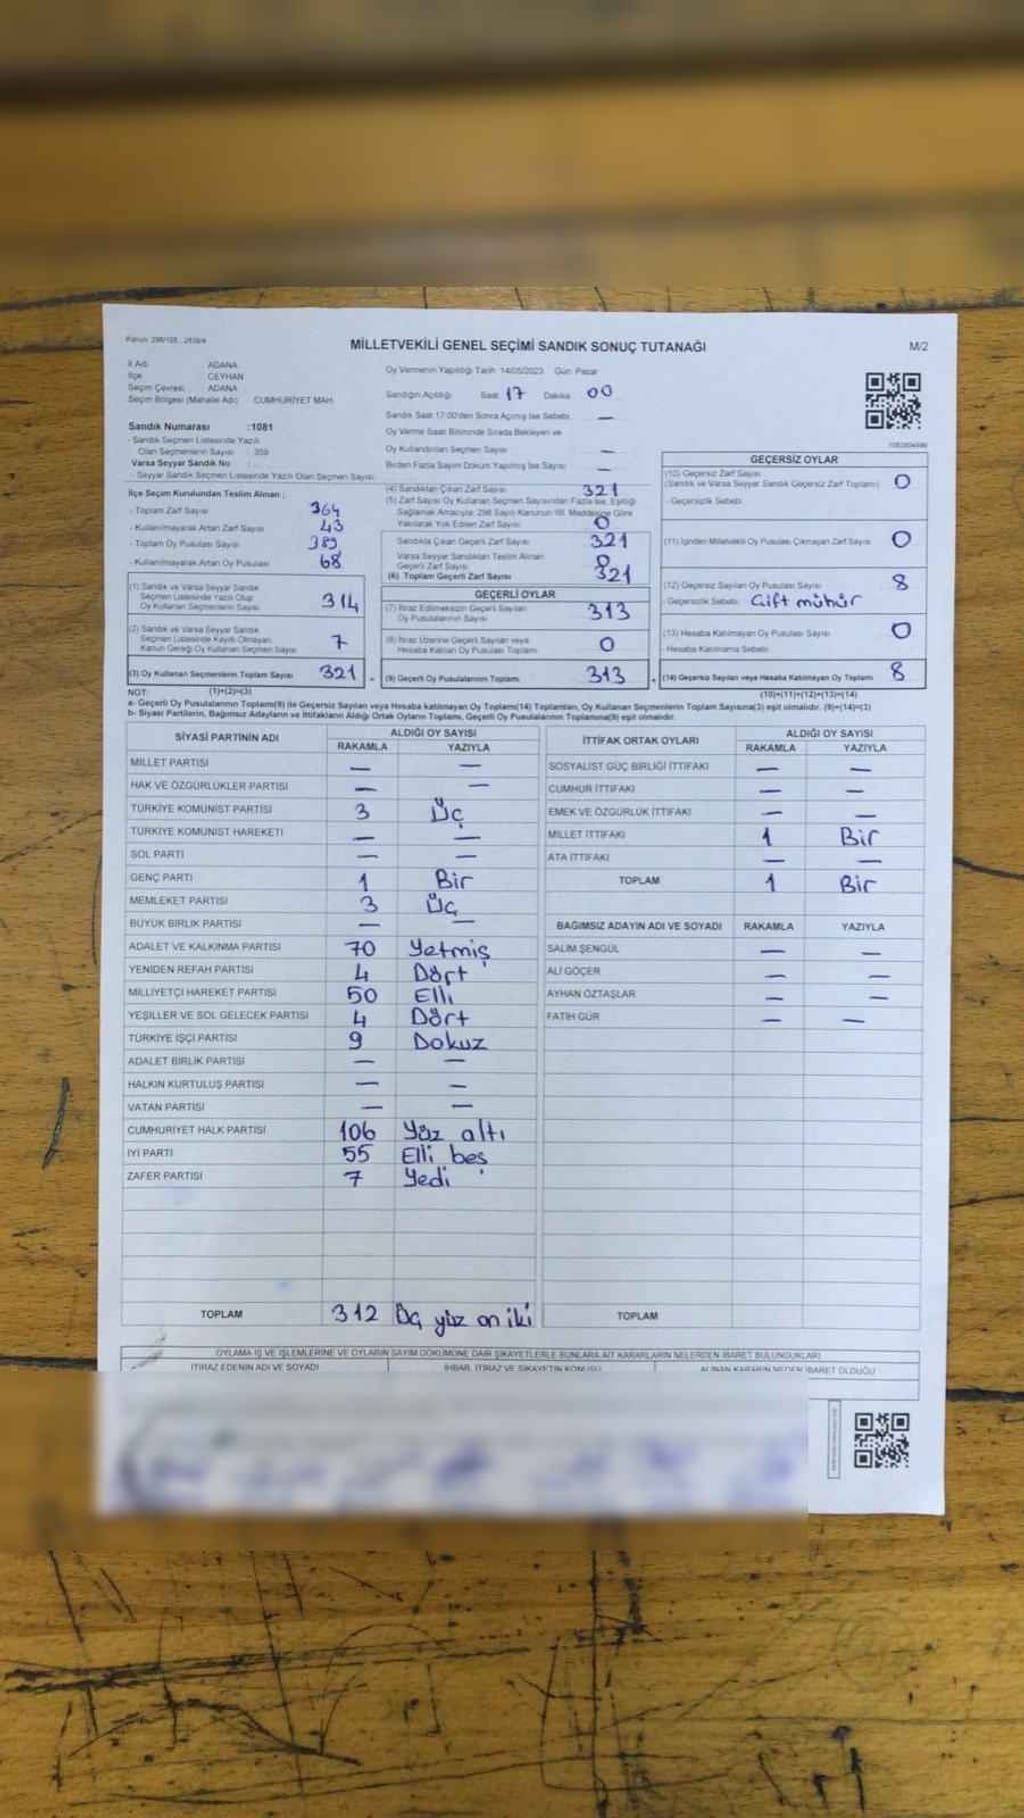 MİLLETVEKİLİ GENEL SEÇİMİ SANDIK SONUÇ TUTANAĞI
M/2
İl Adı : ADANA
İlçe : CEYHAN
Seçim Çevresi : ADANA
Seçim Bölgesi (Mahalle Adı) : CUMHURİYET MAH.
Sandık Numarası :1081
- Sandık Seçmen Listesinde Yazılı
Olan Seçmenlerin Sayısı : 359
Varsa Seyyar Sandık No
- Seyyar Sandık Seçmen Listesinde Yazılı Olan Seçmen Sayısı
Oy Vermenin Yapıldığı Tarih: 14/05/2023 Gün: Pazar
Sandığın Açıldığı Saat 17 Dakika 00
Sandık Saat 17:00'den Sonra Açılmış İse Sebebi —
Oy Verme Saat Bitiminde Sırada Bekleyen ve
Oy Kullandırılan Seçmen Sayısı —
Birden Fazla Sayım Döküm Yapılmış İse Sayısı —
İlçe Seçim Kurulundan Teslim Alınan ;
- Toplam Zarf Sayısı 364
- Kullanılmayarak Artan Zarf Sayısı 43
- Toplam Oy Pusulası Sayısı 389
- Kullanılmayarak Artan Oy Pusulası 68
(1) Sandık ve Varsa Seyyar Sandık
Seçmen Listesinde Yazılı Olup
Oy Kullanan Seçmenlerin Sayısı 314
(2) Sandık ve Varsa Seyyar Sandık
Seçmen Listesinde Kayıtlı Olmayan
Kanun Gereği Oy Kullanan Seçmen Sayısı 7
(3) Oy Kullanan Seçmenlerin Toplam Sayısı 321
(4) Sandıktan Çıkan Zarf Sayısı 321
(5) Zarf Sayısı Oy Kullanan Seçmen Sayısından Fazla İse, Eşitliği
Sağlamak Amacıyla; 298 Sayılı Kanunun 98. Maddesine Göre
Yakılarak Yok Edilen Zarf Sayısı 0
Sandıkta Çıkan Geçerli Zarf Sayısı 321
Varsa Seyyar Sandıktan Teslim Alınan
Geçerli Zarf Sayısı 0
(6) Toplam Geçerli Zarf Sayısı 321
GEÇERLİ OYLAR
(7) İtiraz Edilmeksizin Geçerli Sayılan
Oy Pusulalarının Sayısı 313
(8) İtiraz Üzerine Geçerli Sayılan veya
Hesaba Katılan Oy Pusulaları Toplamı 0
(9) Geçerli Oy Pusulalarının Toplamı 313
GEÇERSİZ OYLAR
(10) Geçersiz Zarf Sayısı
(Sandık ve Varsa Seyyar Sandık Geçersiz Zarf Toplamı) 0
- Geçersizlik Sebebi:
(11) İçinden Milletvekili Oy Pusulası Çıkmayan Zarf Sayısı 0
(12) Geçersiz Sayılan Oy Pusulası Sayısı 8
- Geçersizlik Sebebi: Çift mühür
(13) Hesaba Katılmayan Oy Pusulası Sayısı 0
- Hesaba Katılmama Sebebi:
(14) Geçersiz Sayılan veya Hesaba Katılmayan Oy Toplamı 8
NOT: (1)+(2)=(3) (10)+(11)+(12)+(13)=(14)
a- Geçerli Oy Pusulalarının Toplamı(9) ile Geçersiz Sayılan veya Hesaba katılmayan Oy Toplamı(14) Toplamları, Oy Kullanan Seçmenlerin Toplam Sayısına(3) eşit olmalıdır. (9)+(14)=(3)
b- Siyasi Partilerin, Bağımsız Adayların ve İttifakların Aldığı Ortak Oyların Toplamı, Geçerli Oy Pusulalarının Toplamına(9) eşit olmalıdır.
SİYASİ PARTİNİN ADI ALDIĞI OY SAYISI
RAKAMLA YAZIYLA
MİLLET PARTİSİ — —
HAK VE ÖZGÜRLÜKLER PARTİSİ — —
TÜRKİYE KOMÜNİST PARTİSİ 3 Üç
TÜRKİYE KOMÜNİST HAREKETİ — —
SOL PARTİ — —
GENÇ PARTİ 1 Bir
MEMLEKET PARTİSİ 3 Üç
BÜYÜK BİRLİK PARTİSİ — —
ADALET VE KALKINMA PARTİSİ 70 Yetmiş
YENİDEN REFAH PARTİSİ 4 Dört
MİLLİYETÇİ HAREKET PARTİSİ 50 Elli
YEŞİLLER VE SOL GELECEK PARTİSİ 4 Dört
TÜRKİYE İŞÇİ PARTİSİ 9 Dokuz
ADALET BİRLİK PARTİSİ — —
HALKIN KURTULUŞ PARTİSİ — —
VATAN PARTİSİ — —
CUMHURİYET HALK PARTİSİ 106 Yüz altı
İYİ PARTİ 55 Elli beş
ZAFER PARTİSİ 7 Yedi
TOPLAM 312 Üç yüz on iki
İTTİFAK ORTAK OYLARI ALDIĞI OY SAYISI
RAKAMLA YAZIYLA
SOSYALİST GÜÇ BİRLİĞİ İTTİFAKI — —
CUMHUR İTTİFAKI — —
EMEK VE ÖZGÜRLÜK İTTİFAKI — —
MİLLET İTTİFAKI 1 Bir
ATA İTTİFAKI — —
TOPLAM 1 Bir
BAĞIMSIZ ADAYIN ADI VE SOYADI RAKAMLA YAZIYLA
SALİM ŞENGÜL — —
ALİ GÖÇER — —
AYHAN ÖZTAŞLAR — —
FATİH GÜR — —
TOPLAM
OYLAMA İŞ VE İŞLEMLERİNE VE OYLARIN SAYIM DÖKÜMÜNE DAİR ŞİKAYETLERLE BUNLARA AİT KARARLARIN NELERDEN İBARET BULUNDUKLARI
İTİRAZ EDENİN ADI VE SOYADI İHBAR, İTİRAZ VE ŞİKAYETİN KONUSU ALINAN KARARIN NEDEN İBARET OLDUĞU